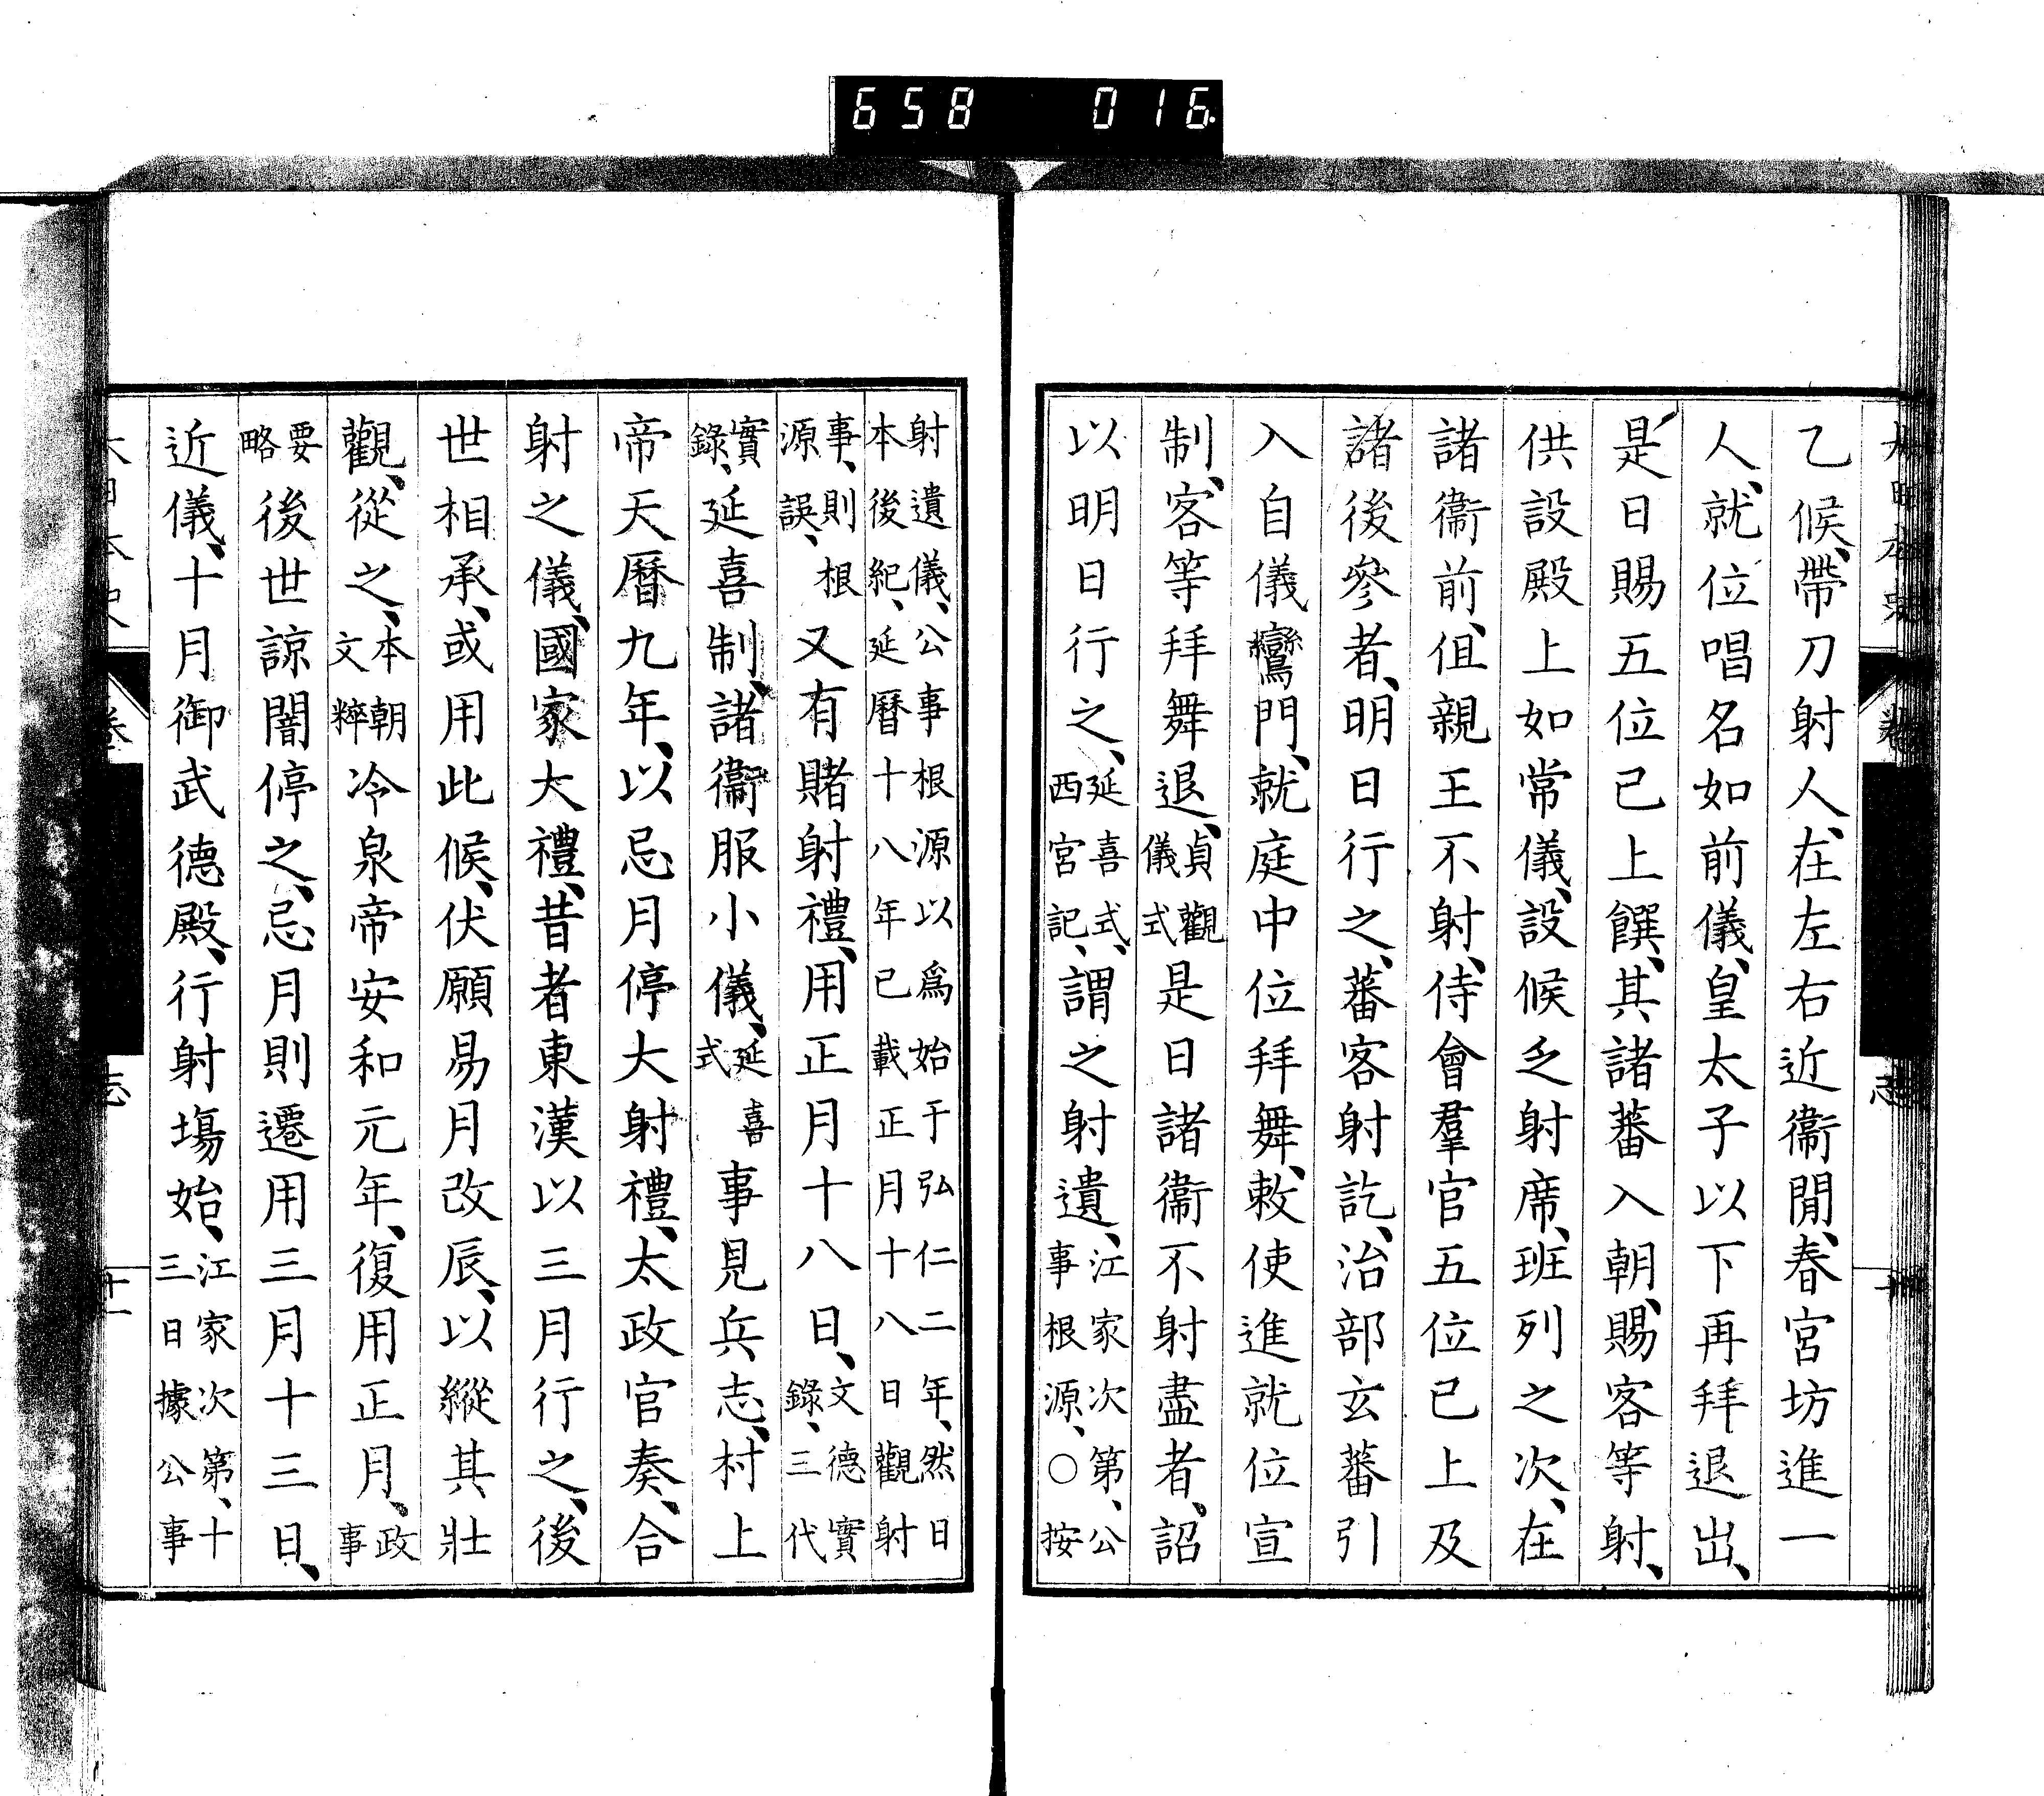 658 016
乙候、帶刀射人、在左右近衞閒、春宮坊進一
人、就位唱名如前儀、皇太子以下再拜退出、
是日賜五位已上饌、其諸蕃入朝、賜客等射、
供設殿上如常儀、設候乏射席、班列之次、在
諸衞前、但親王不射、侍會羣官五位已上及
諸後參者、明日行之、蕃客射訖、治部玄蕃引
入自儀鸞門、就庭中位拜舞、敕使進就位宣
制、客等拜舞退、貞觀儀式是日諸衞不射盡者、詔
以明日行之、延喜式、西宮記、謂之射遺、江家次第、公事根源、○按
射遺儀、公事根源以爲始于弘仁二年、然日本後紀、延曆十八年已載正月十八日觀射
事、則根源誤、又有賭射禮、用正月十八日、文德實錄、三代
實錄、延喜制、諸衞服小儀、延喜式事見兵志、村上
帝天曆九年、以忌月停大射禮、太政官奏、合
射之儀、國家大禮、昔者東漢以三月行之、後
世相承、或用此候、伏願易月改辰、以縱其壯
觀、從之、本朝文粹冷泉帝安和元年、復用正月、政事
要略後世諒闇停之、忌月則遷用三月十三日、
近儀、十月御武德殿、行射場始、江家次第、十三日據公事
大日本史 卷 志 十一